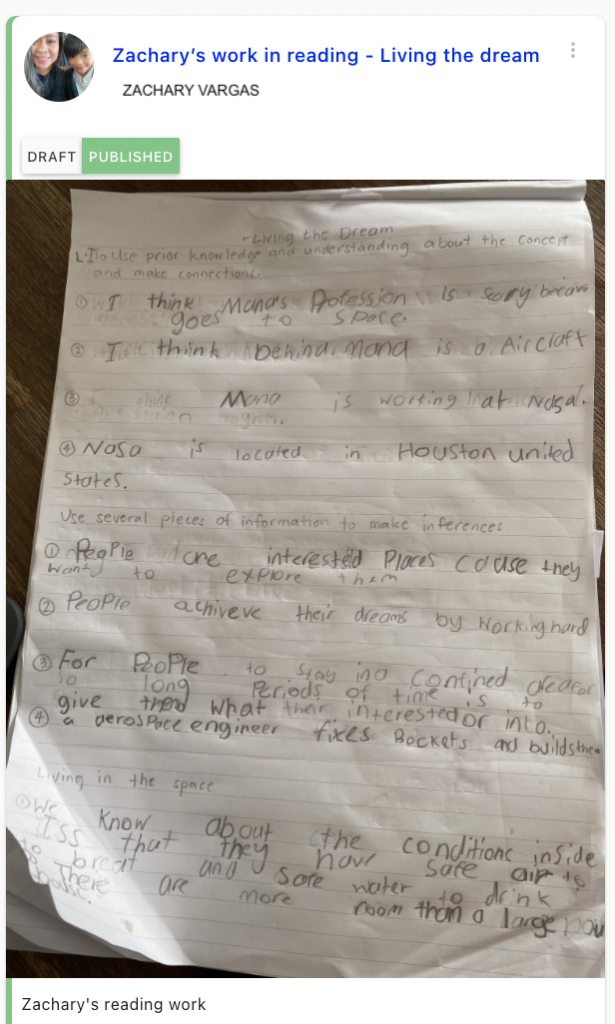 Zachary's work in reading - Living the dream
ZACHARY VARGAS
DRAFT PUBLISHED
-Living the Dream
L.I To Use prior knowledge and understanding about the concept
and make connections.
① I think Mana's Profession is sorry because
goes to space.
② I think behind Mana is a Aircraft
③ think Mana is working at Nasa.
④ Nasa is located in Houston united
States.
Use several pieces of information to make inferences
① People are interested Places cause they
want to explore them
② People achiveve their dreams by Working hard
③ For People to stay in a confined area for
so long Periods of time is to
give them what their interested or into.
④ a aerospace engineer fixes Rockets and builds them
Living in the space
① We know about the conditions inside
ISS that they have safe air to
to breat and safe water to drink
There are more room than a large
house.
Zachary's reading work